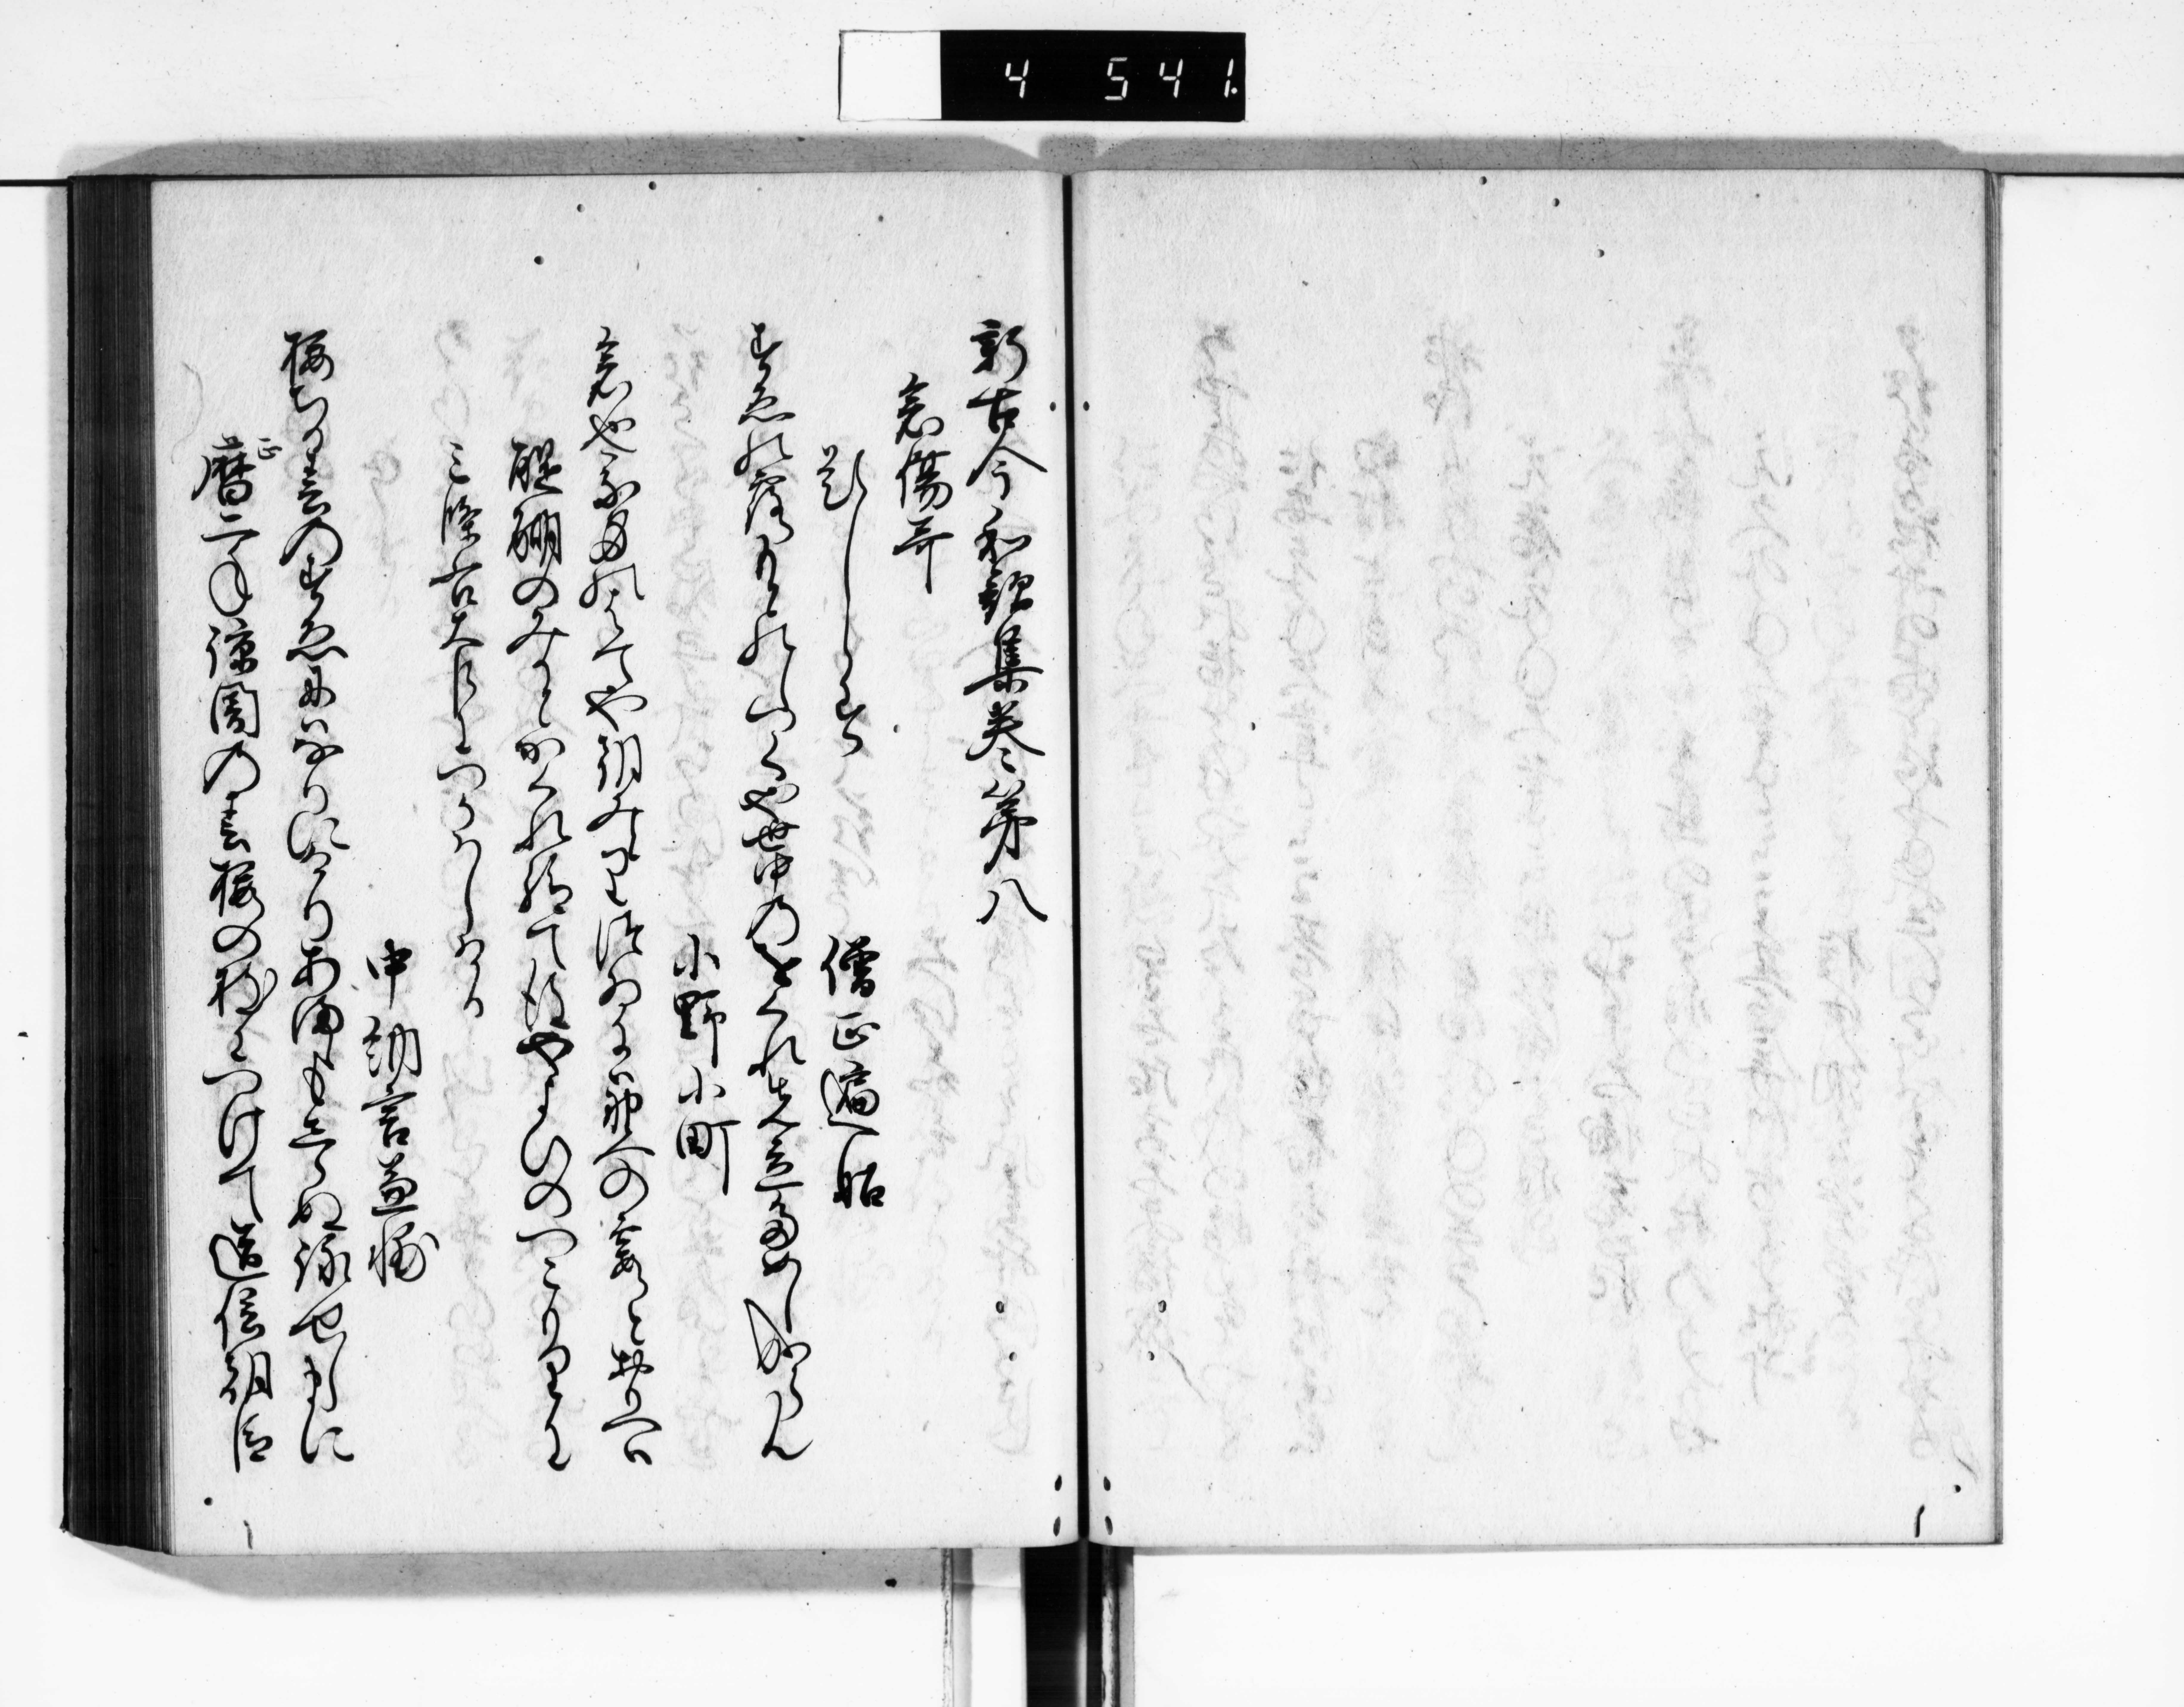 4 541.
新古今和謌集巻第八
哀傷哥
題しらす　僧正遍昭
すゑの露もとのしつくや世中のをくれ先立ためしなるらん
小野小町
哀也我身のはてや朝みとりつゐには野への霞とおもへは
醍醐のみかとかくれ給て後やよひのつこもりに
三條右大臣につかはしける
中納言兼輔
桜ちる春のすゑにはなりにけりあまゝもしらぬ詠せしまに
正暦二年諒闇の春桜の枝につけて道信朝臣